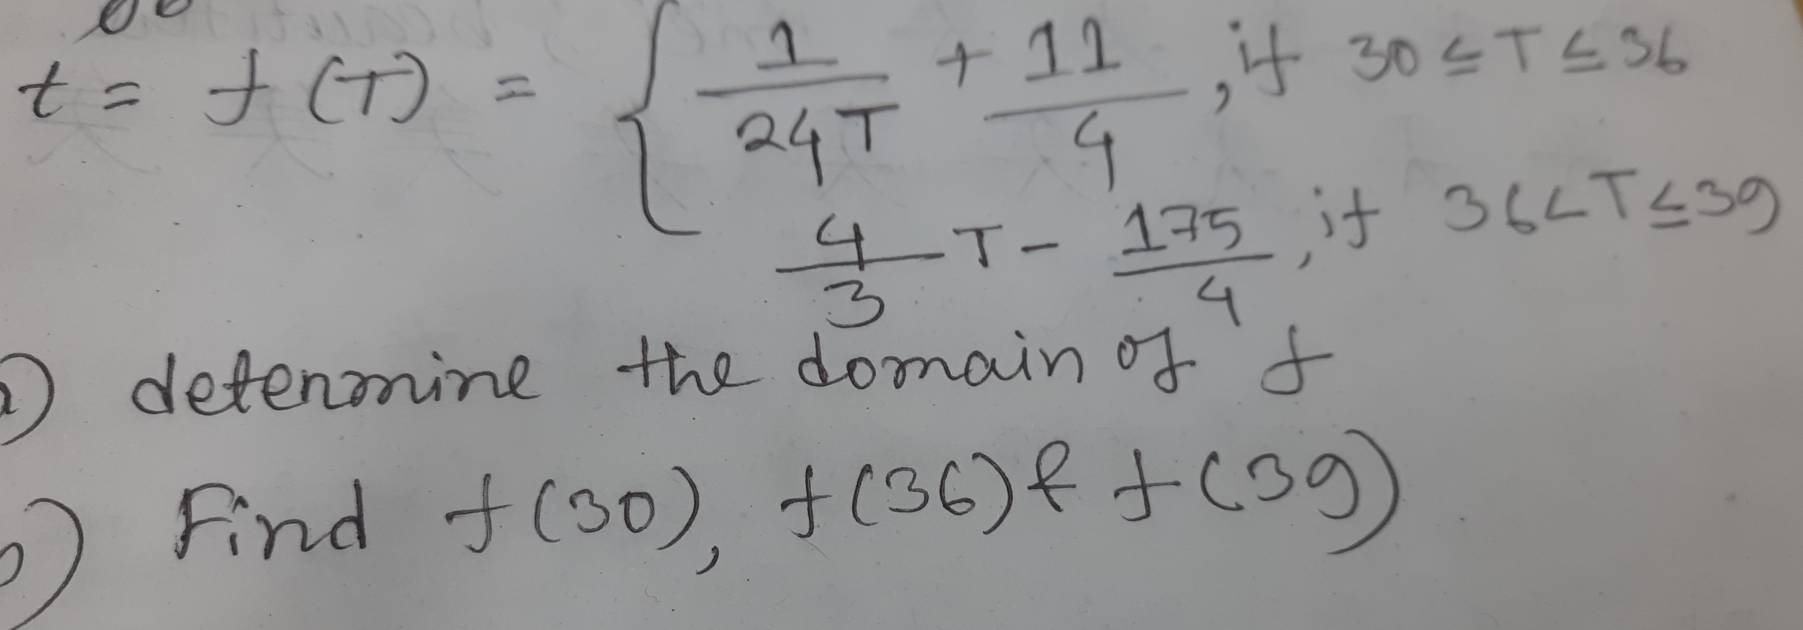 t = f(T) = { 1/24T + 11/4, if 30 ≤ T ≤ 36
4/3 T - 175/4, if 36 < T ≤ 39
) determine the domain of f
) Find f(30), f(36) & f(39)